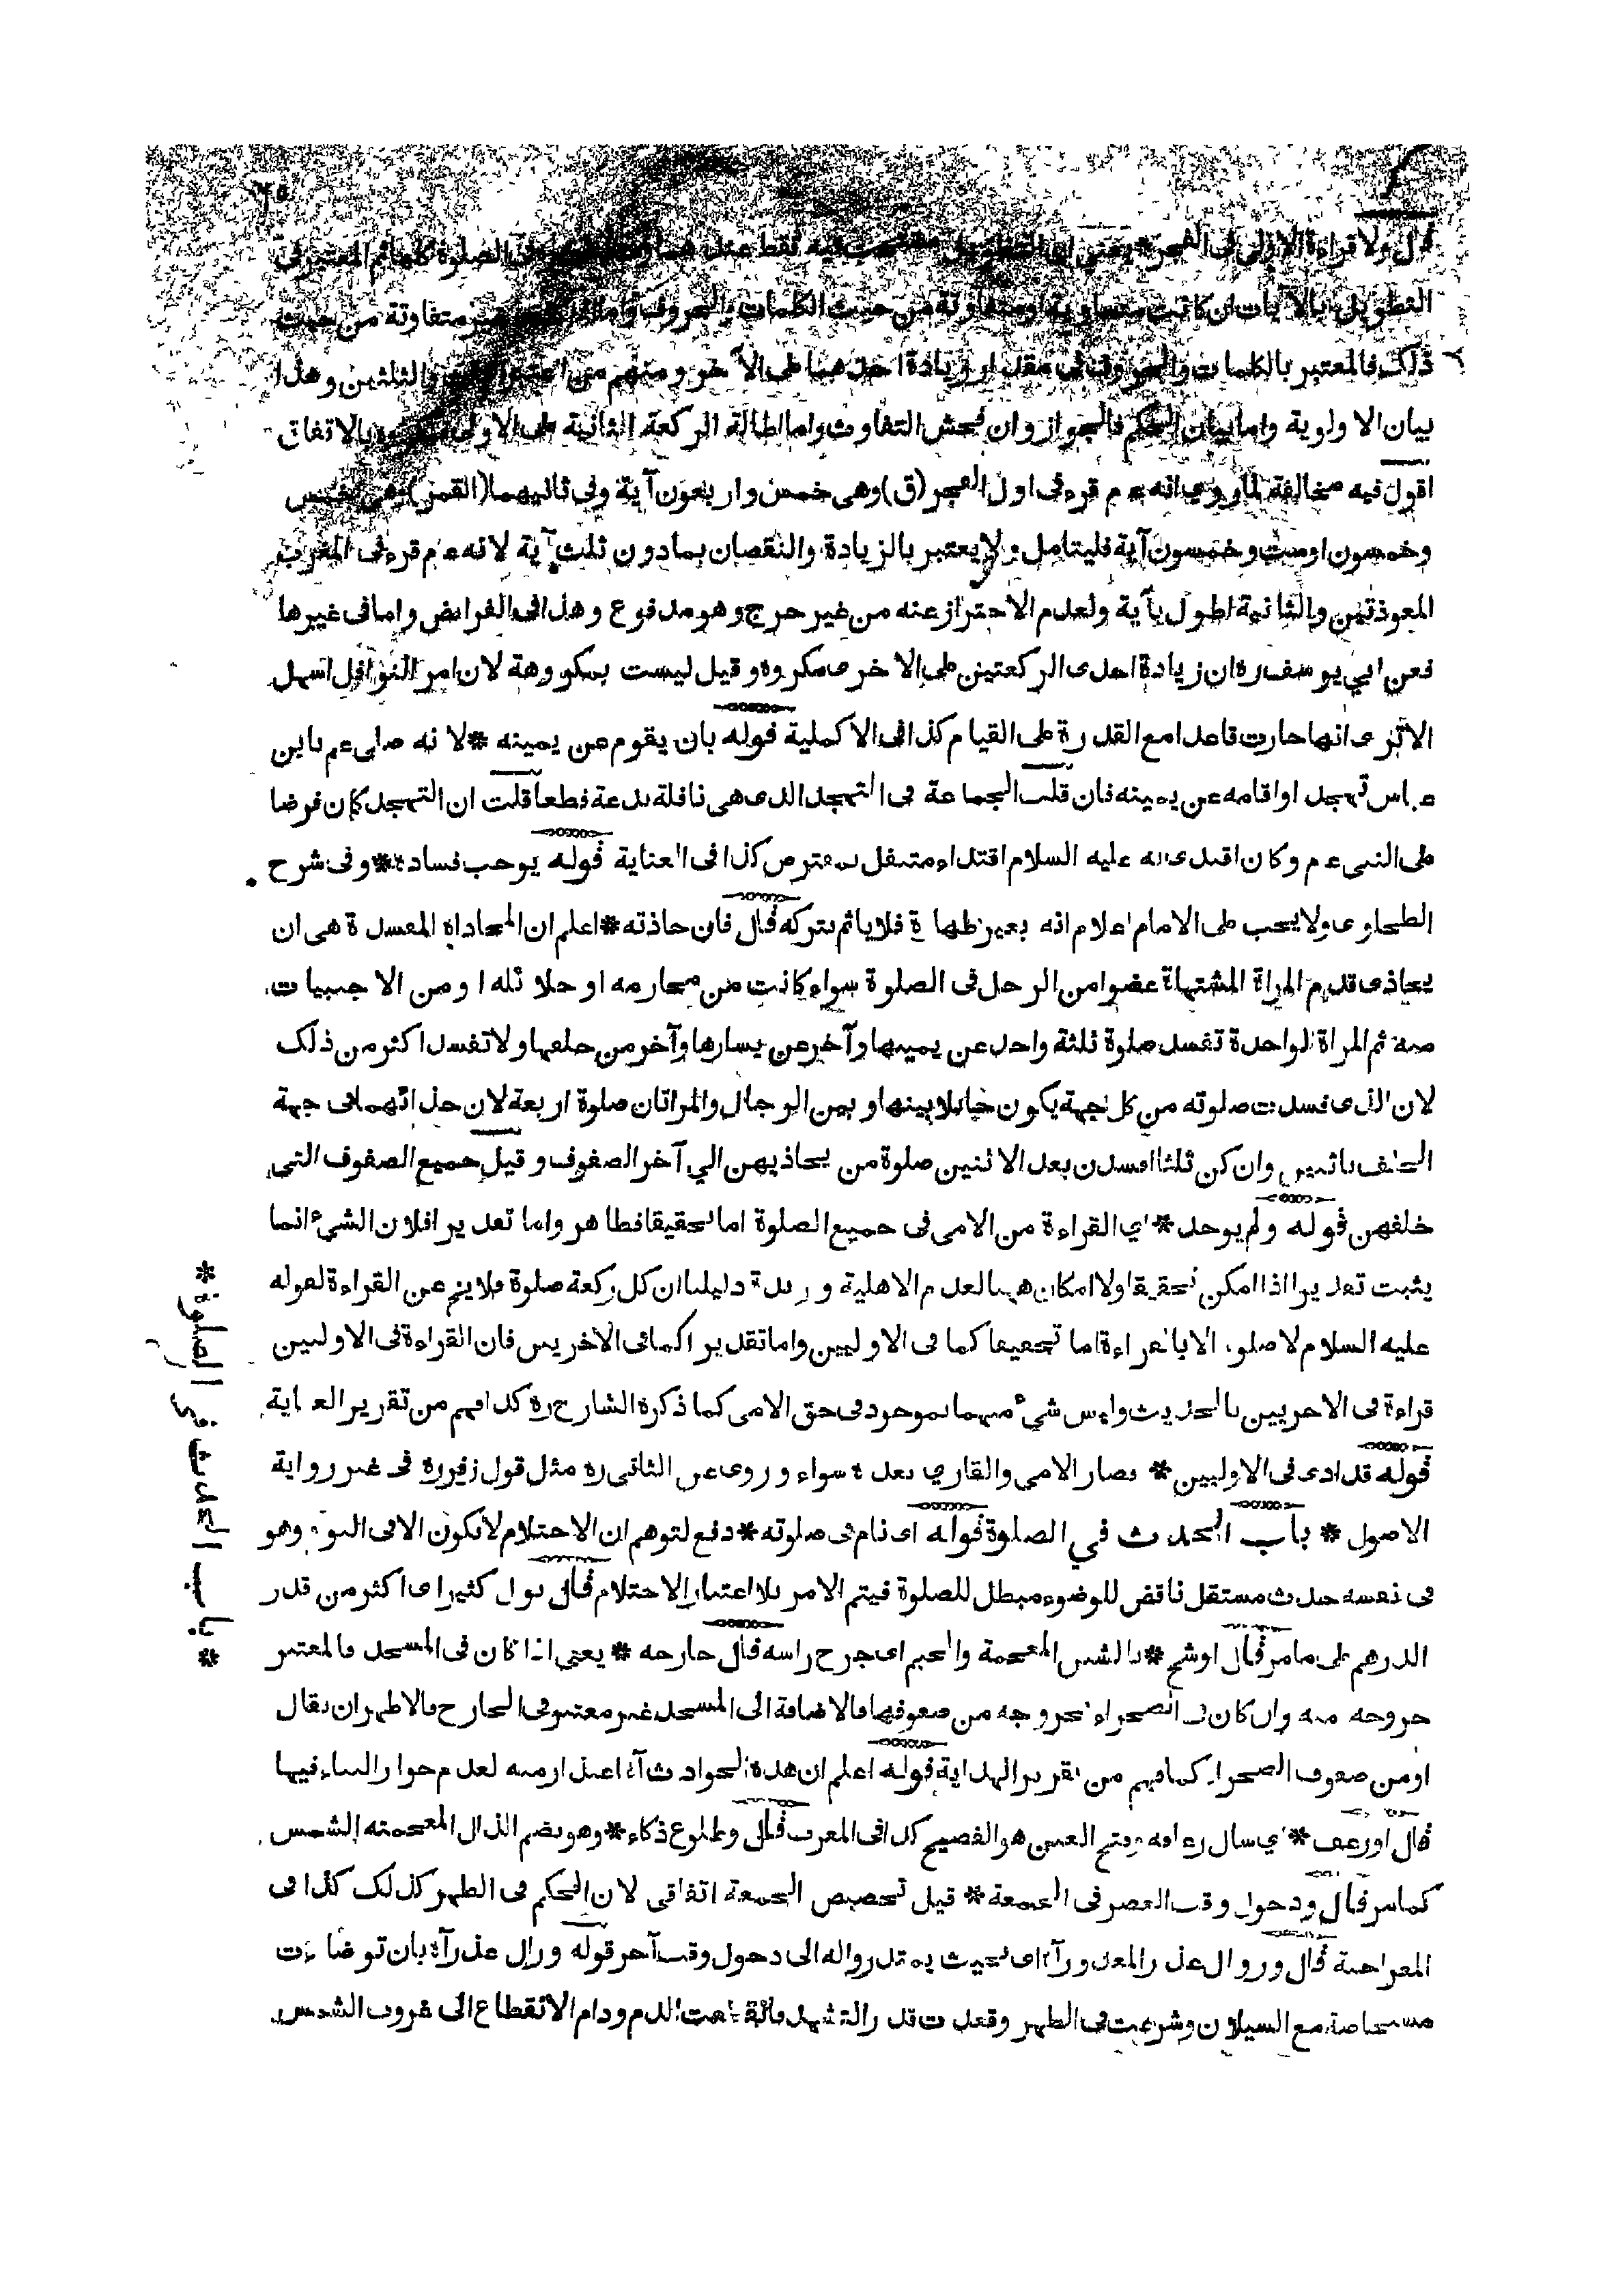 ٢٥
قال ولا قراءة الاولى فى الفجر * يعنى ان التطويل فيه فقط عند هما فى الصلوة كلها ثم المعتبر فى
التطويل بالآيات ان كانت متساوية او متفاوتة من حيث الكلمات والحروف واما متفاوتة من حيث
ذلك فالمعتبر بالكلمات والحروف فى مقدار زيادة احدهما على الآخر ومنهم من والثلثين وهذا
بيان الاولوية واما بيان الحكم فالجواز وان فحش التفاوت واما اطالة الركعة الثانية على الاولى بالاتفاق
اقول فيه مخالفة لما روى انه ع م قرء فى اول الفجر (ق) وهى خمس واربعون آية وفى ثانيهما (القمر) وهى خمس
وخمسون اوست وخمسون آية فليتامل ولا يعتبر بالزيادة والنقصان بمادون ثلث آية لانه ع م قرء فى المغرب
المعوذتين والثانية اطول بآية ولعدم الاحتراز عنه من غير حرج وهو مدفوع وهذا فى الفرائض واما فى غيرها
فعن ابي يوسف ره ان زيادة احدى الركعتين على الاخرى مكروه وقيل ليست بمكروهة لان امر النوافل اسهل
الا ترى انها جازت قاعدا مع القدرة على القيام كذا فى الاكملية قوله بان يقوم عن يمينه * لا نه صلى عم بابن
عباس تهجد او اقامه عن يمينه فان قلت الجماعة فى التهجد الذى هى نافلة بدعة قطعا قلت ان التهجد كان فرضا
على النبى ع م وكان اقتدى به عليه السلام اقتداء متنفل بمفترض كذا فى العناية قوله يوجب فساده * وفى شرح
الطحاوى ولا يجب على الامام اعلام انه بغير طهارة فلا ياثم بتركه قال فان حاذته * اعلم ان المحاذاة المفسدة هى ان
يحاذى قدم المراة المشتهاة عضوا من الرجل فى الصلوة سواء كانت من محارمه او حلائله او من الاجنبيات
منه ثم المراة الواحدة تفسد صلوة ثلثة واحد عن يمينها وآخر عن يسارها وآخر من خلفها ولا تفسد اكثر من ذلك
لان الذى فسدت صلوته من كل جهة يكون حائلا بينها وبين الرجال والمراتان صلوة اربعة لان حذاتهما فى جهة
الخلف باثنين وان كن ثلثا افسدن بعد الاثنين صلوة من يحاذيهن الي آخر الصفوف وقيل جميع الصفوف التى
خلفهن قوله ولم يوجد * اي القراءة من الامى فى جميع الصلوة اما تحقيقا فظاهر واما تقديرا فلان الشئ انما
يثبت تقديرا اذا امكن تحقيقا ولا امكان ههنا لعدم الاهلية دليلنا ان كل ركعة صلوة فلا يخ عن القراءة لقوله
عليه السلام لا صلوة الا بالقراءة اما تحقيقا كما فى الاوليين واما تقديرا كما فى الاخريين فان القراءة فى الاوليين
قراءة فى الاخريين بالحديث وليس شئ منهما بموجود فى حق الامى كما ذكره الشارح ره كذا فهم من تقرير العناية
قوله قد ادى فى الاوليين * فصار الامى والقاري بعده سواء وروى عن الثانى ره مثل قول زفر ره فى غير رواية
الاصول * باب الحدث في الصلوة قوله اى نام فى صلوته * دفع لتوهم ان الاحتلام لا يكون الا فى النوم وهو
فى نفسه حدث مستقل ناقض للوضوء مبطل للصلوة فيتم الامر بلا اعتبار الاحتلام قال بول كثير اى اكثر من قدر
الدرهم على ما مر قال او شج * بالشين المعجمة والجيم اى جرح راسه قال خارجه * يعنى اذا كان فى المسجد فالمعتبر
خروجه منه وان كان فى الصحراء خروجه من صفوفها فالاضافة الى المسجد غير معتبر فى الخارج فالاظهر ان يقال
او من صفوف الصحراء كما فهم من تقرير الهداية قوله اعلم ان هذه الحوادث لعدم جواز البناء فيها
قال او رعف * اي سال رعافه وبفتح العين هو الفصيح كذا فى المغرب قال وطلوع ذكاء * وهو بضم الذال المعجمة الشمس
كما مر قال ودخول وقت العصر فى الجمعة * قيل تخصيص الجمعة اتفاقى لان الحكم فى الظهر كذلك كذا فى
المعراجية قال وزوال عذر المعذور اى بحيث يمتد زواله الى دخول وقت آخر قوله وزال عذره بان توضات
مستحاضة مع السيلان وشرعت فى الظهر وقعدت قدر التشهد فانقطعت الدم ودام الانقطاع الى غروب الشمس
* باب الحدث فى الصلوة *